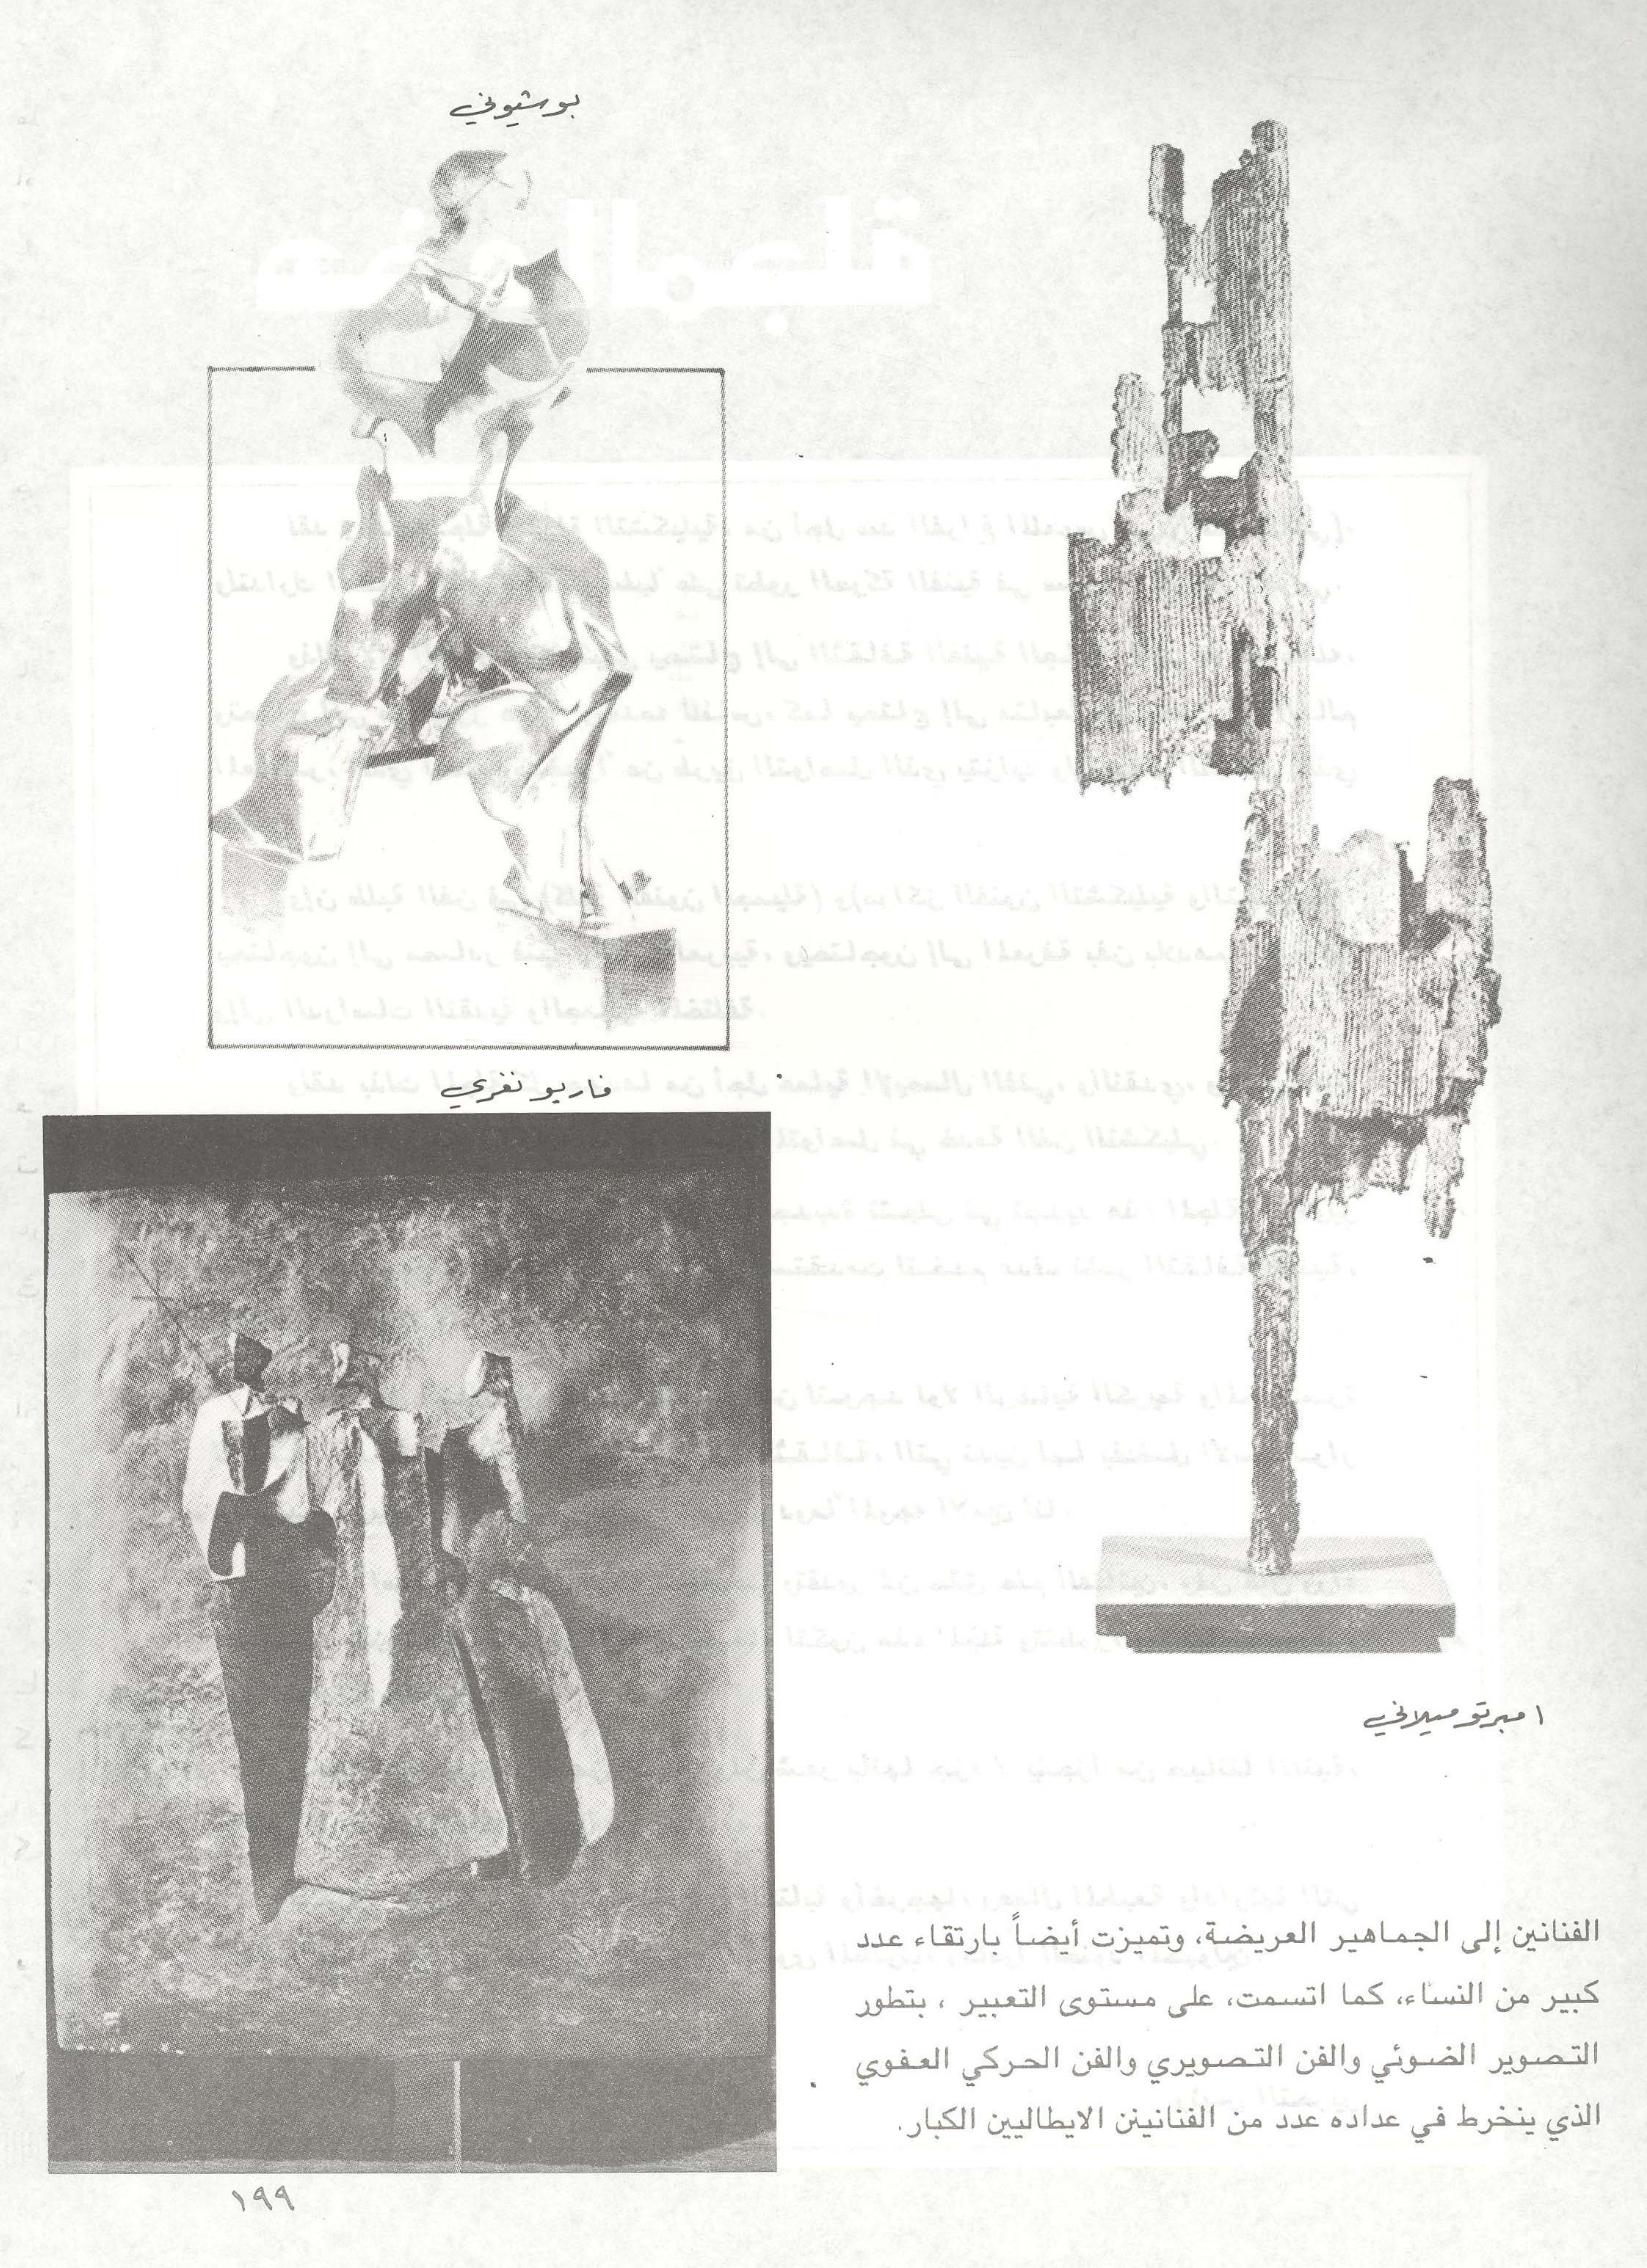 بوشيوني
فاريو نغري
امبرتو ميلاني
الفنانين إلى الجماهير العريضة، وتميزت أيضاً بارتقاء عدد
كبير من النساء، كما اتسمت، على مستوى التعبير ، بتطور
التصوير الضوئي والفن التصويري والفن الحركي العفوي
الذي ينخرط في عداده عدد من الفنانينن الايطاليين الكبار.
١٩٩